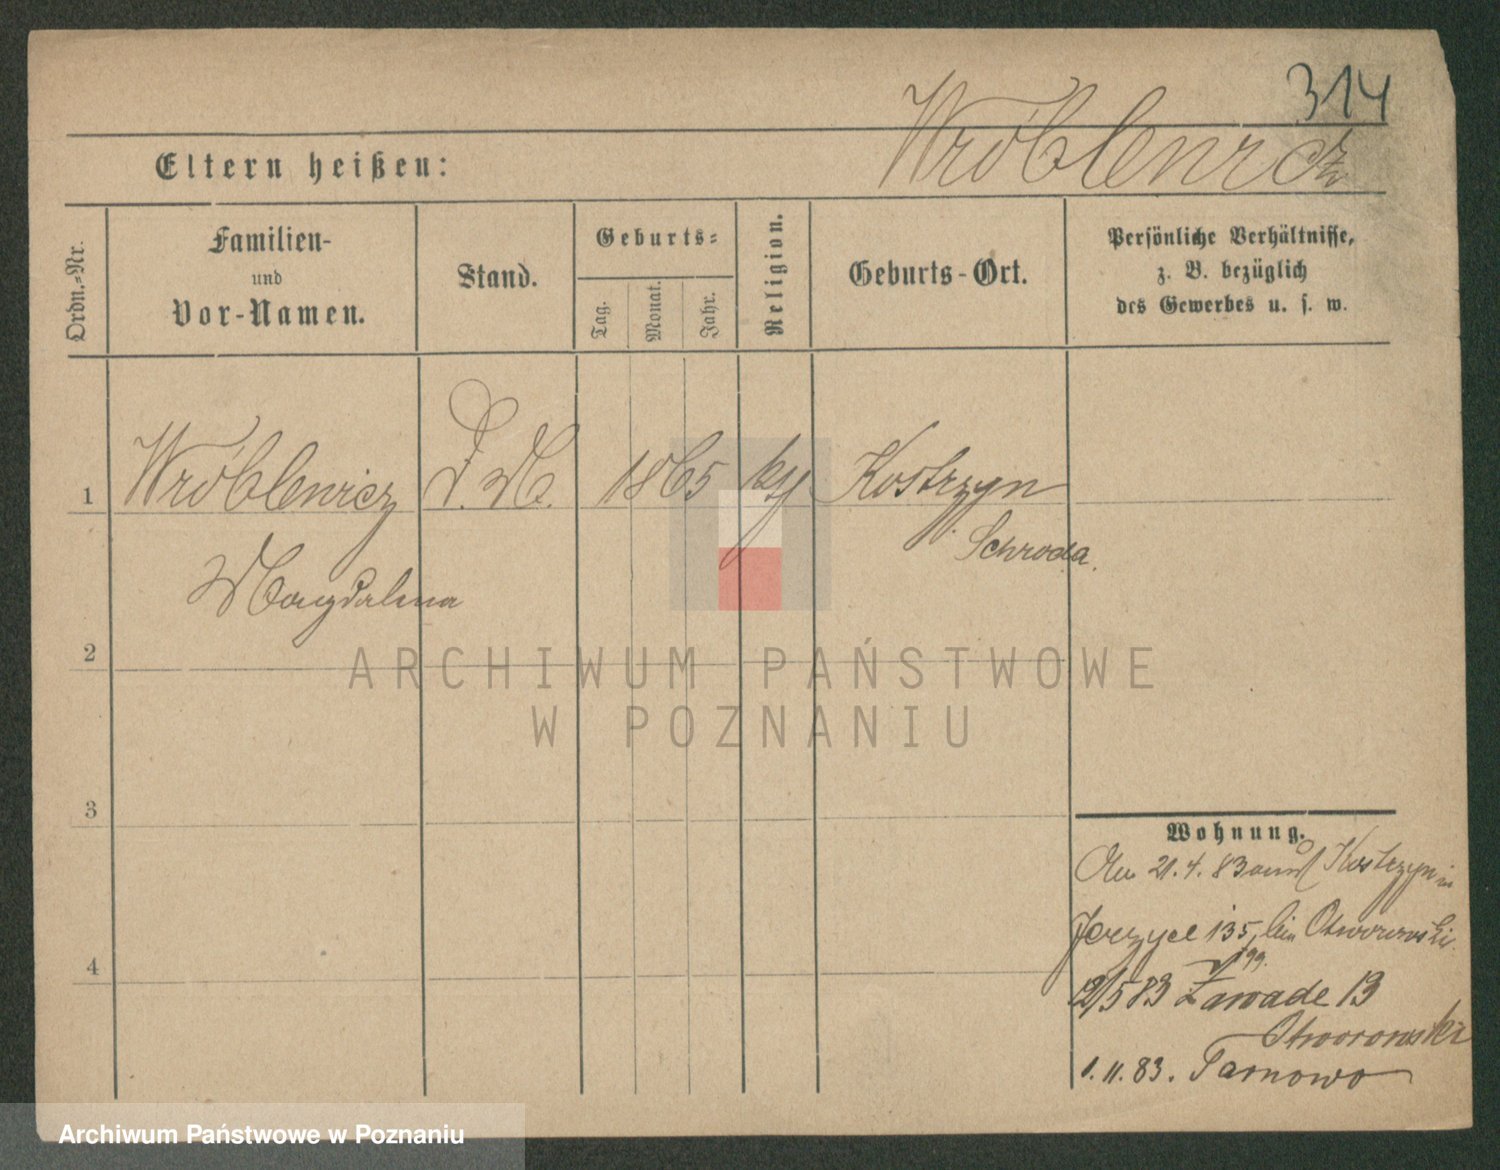 314
Wróblewicz
Eltern heißen:
Ordn.-Nr.
Familien-
und
Vor-Namen.
Stand.
Geburts-
Tag.
Monat.
Jahr.
Religion.
Geburts-Ort.
Persönliche Verhältnisse,
z. B. bezüglich
des Gewerbes u. s. w.
1 Wróblewicz D. M. 1865 Kostrzyn
Schroda.
Magdalena
2
ARCHIWUM PAŃSTWOWE
W POZNANIU
3
Wohnung.
21. 4. 83 Kostrzyn in
Jerzyce 135, Otworowski.
4
12/5 83 Zawade 13
Otworowski
1. 11. 83. Tarnowo
Archiwum Państwowe w Poznaniu